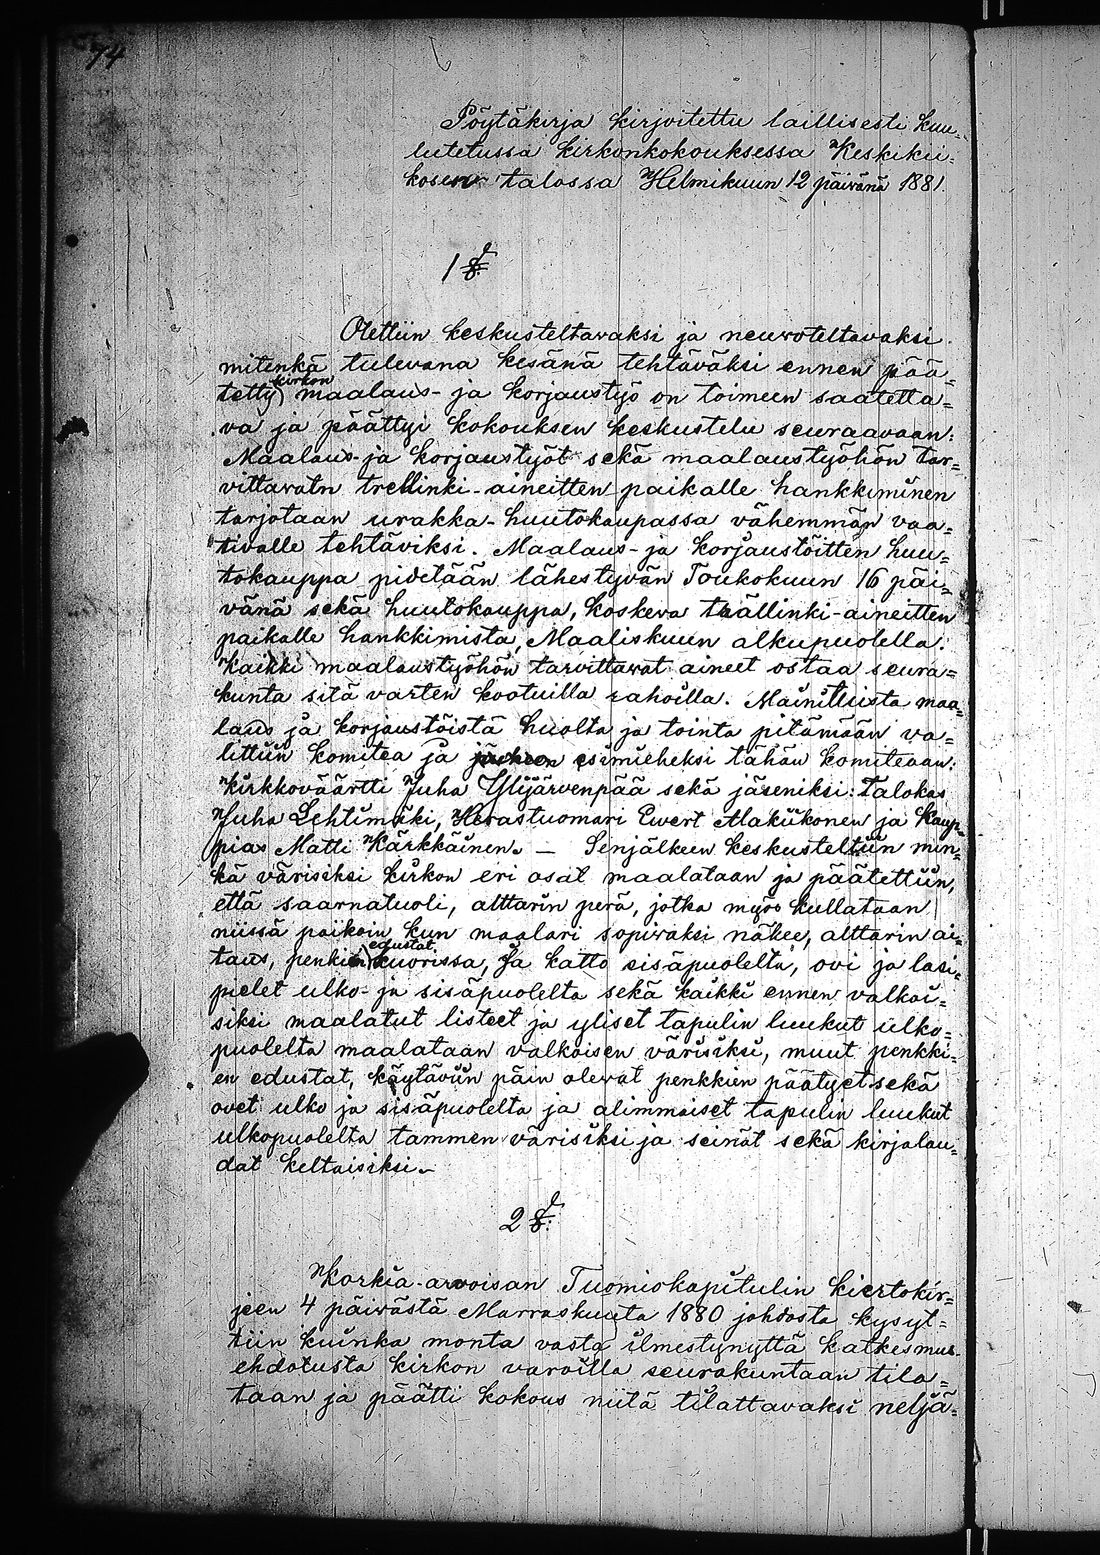 74
Pöytäkirja kirjoitettu laillisesti kuu-
lutetussa kirkonkokouksessa Keskikii-
kosen talossa Helmikuun 12 päivänä 1881.
1 §.
Otettiin keskusteltavaksi ja neuvoteltavaksi
mitenkä tulevana kesänä tehtäväksi ennen pää-
tetty kirkon maalaus- ja korjaustyö on toimeen saatetta-
va ja päättyi kokouksen keskustelu seuraavaan:
Maalaus- ja korjaustyöt sekä maalaustyöhön tar-
vittavain trellinki-aineitten paikalle hankkiminen
tarjotaan urakka-huutokaupassa vähemmän vaa-
tivalle tehtäviksi. Maalaus- ja korjaustöitten huu-
tokauppa pidetään lähestyvän Toukokuun 16 päi-
vänä sekä huutokauppa, koskeva trällinki-aineitten
paikalle hankkimista, Maaliskuun alkupuolella.
Kaikki maalaustyöhön tarvittavat aineet ostaa seura-
kunta sitä varten kootuilla rahoilla. Mainituista maa-
laus ja korjaustöistä huolta ja tointa pitämään va-
littiin komitea ja esimieheksi tähän komiteaan:
Kirkkoväärtti Juha Ylijärvenpää sekä jäseniksi: Talokas
Juha Lehtimäki, Herastuomari Ewert Alakiikonen ja Kaup-
pias Matti Kärkkäinen. — Senjälkeen keskusteltiin min-
kä värisiksi kirkon eri osat maalataan ja päätettiin,
että saarnatuoli, alttarin perä, jotka myös kullataan
niissä paikoin kun maalari sopivaksi näkee, alttarin ai-
taus, penkin edustat kuorissa, ja katto sisäpuolelta, ovi ja lasi-
pielet ulko- ja sisäpuolelta sekä kaikki ennen valkoi-
siksi maalatut listeet ja yliset tapulin luukut ulko-
puolelta maalataan valkoisen värisiksi, muut penkki-
en edustat, käytäviin päin olevat penkkien päätyet sekä
ovet ulko ja sisäpuolelta ja alimmaiset tapulin luukut
ulkopuolelta tammen värisiksi ja seinät sekä kirjalau-
dat keltaisiksi.
2 §.
Korkia-arvoisan Tuomiokapitulin kiertokir-
jeen 4 päivästä Marraskuuta 1880 johdosta kysyt-
tiin kuinka monta vasta ilmestynyttä katkesmus-
ehdotusta kirkon varoilla seurakuntaan tila-
taan ja päätti kokous niitä tilattavaksi neljä-